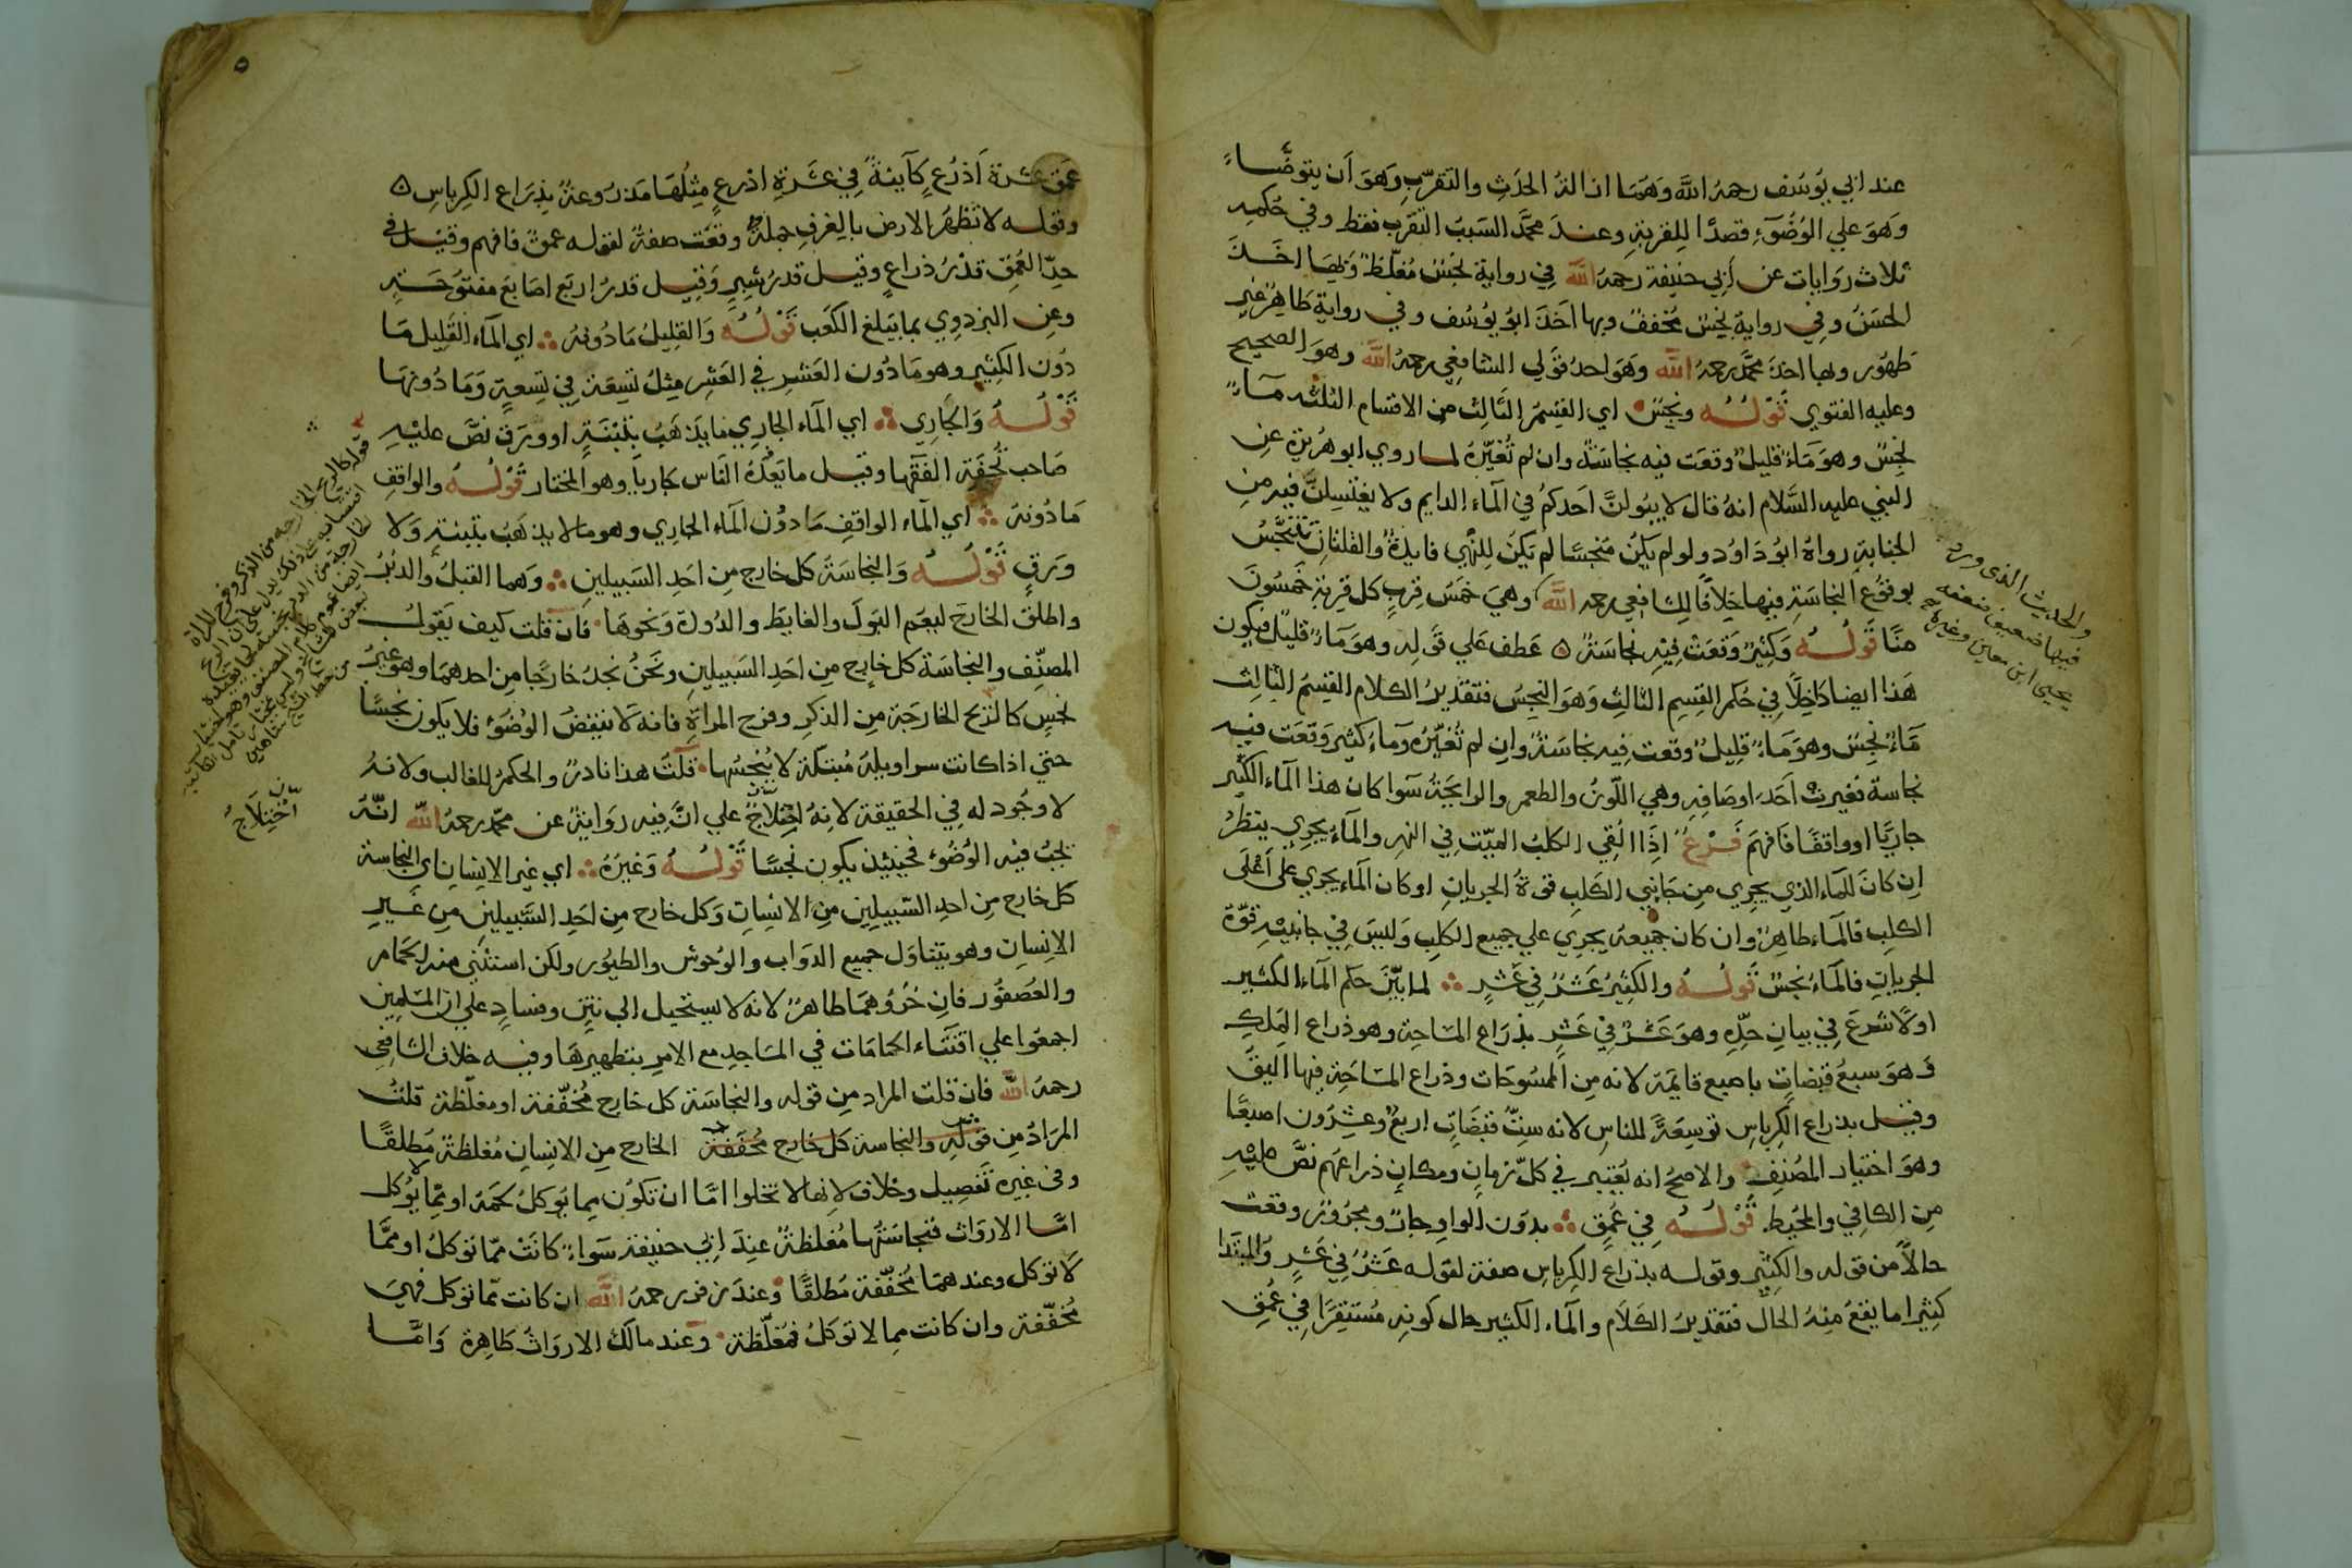 عند ابي يوسف رحمه الله وهما ازالة الحدث والتقرب وهو ان يتوضاء
وهو علي الوضوء قصدا للقربة وعند محمد السبب التقرب فقط وفي حكمه
ثلاث روايات عن ابي حنيفة رحمه الله في رواية نجس مغلظ وبها اخذ
الحسن وفي رواية نجس مخفف وبها اخذ ابو يوسف وفي رواية طاهر غير
طهور وبها اخذ محمد رحمه الله وهو احد قولي الشافعي رحمه الله وهو الصحيح
وعليه الفتوي قوله ونجس اي القسم الثالث من الاقسام الثلثه ماء
نجس وهو ماء قليل وقعت فيه نجاسة وان لم تغيره لما روي ابو هريرة عن
النبي عليه السلام انه قال لا يبولن احدكم في الماء الدايم ولا يغتسلن فيه من
الجنابة رواه ابو داود ولو لم يكن منجسا لم يكن للنهي فايدة والقلتان تتنجس
بوقوع النجاسة فيها خلافا للشافعي رحمه الله وهي خمس قرب كل قربة خمسون
منا قوله وكثير وقعت فيه نجاسة ه عطف علي قوله وهو ماء قليل فيكون
هذا ايضا داخلا في حكم القسم الثالث وهو النجس فتقدير الكلام القسم الثالث
ماء نجس وهو ماء قليل وقعت فيه نجاسة وان لم تغيره وماء كثير وقعت فيه
نجاسة تغيرت احد اوصافه وهي اللون والطعم والرايحة سوا كان هذا الماء الكثير
جاريا او واقفا فافهم فرع اذا القي الكلب الميت في النهر والماء يجري ينظر
ان كان للماء الذي يجري من جانبي الكلب قوة الجريان او كان الماء يجري على اعلى
الكلب فالماء طاهر وان كان جميعه يجري علي جميع الكلب وليس في جانبيه قوة
الجريان فالماء نجس قوله والكثير عشر في عشر لما بين حكم الماء الكثير
اولا شرع في بيان حده وهو عشر في عشر بذراع المساحة وهو ذراع الملك
وهو سبع قبضات باصبع قايمة لانه من الممسوحات وذراع المساحة فيها اليق
وقيل بذراع الكرباس توسعة للناس لانه ست قبضات اربع وعشرون اصبعا
وهو اختيار المصنف والاصح انه يعتبر في كل زمان ومكان ذراعهم نص عليه
من الكافي والمحيط قوله في عمق بدون الواو جار ومجرور وقعت
حالا من قوله والكثير وقوله بذراع الكرباس صفة لقوله عشر في عشر والمبتدا
كثيرا ما يقع منه الحال فتقدير الكلام والماء الكثير حال كونه مستقرا في عمق
والحديث الذى ورد
فيها ضعيف ضعفه
يحيى ابن معين وغيره
٥
عمق عشرة اذرع كآينة في عشرة اذرع مثلها مذروعة بذراع الكرباس ه
وقوله لا تظهر الارض بالغرف جملة وقعت صفة لقوله عمق فافهم وقيل في
حد العمق قدر ذراع وقيل قدر شبر وقيل قدر اربع اصابع مفتوحة
وعن البزدوي بما يبلغ الكعب قوله والقليل ما دونه اي الماء القليل ما
دون الكثير وهو ما دون العشر في العشر مثل تسعة في تسعة وما دونها
قوله والجاري اي الماء الجاري ما يذهب بتبنة او ورق نص عليه
صاحب تحفة الفقها وقيل ما يعده الناس جاريا وهو المختار قوله والواقف
ما دونه اي الماء الواقف ما دون الماء الجاري وهو ما لا يذهب بتبنة ولا
ورق قوله والنجاسة كل خارج من احد السبيلين وهما القبل والدبر
واطلق الخارج ليعم البول والغايط والدودة ونحوها فان قلت كيف يقول
المصنف والنجاسة كل خارج من احد السبيلين ونحن نجد خارجا من احدهما وهو غير
نجس كالريح الخارجة من الذكر وفرج المراة فانه لا ينقض الوضوء فلا يكون نجسا
حتي اذا كانت سراويله مبتلة لا ينجسها قلت هذا نادر والحكم للغالب ولانه
لا وجود له في الحقيقة لانه اختلاج علي ان فيه رواية عن محمد رحمه الله انه
يجب فيه الوضوء فحينئذ يكون نجسا قوله وغيره اي غير الانسان اى النجاسة
كل خارج من احد السبيلين من الانسان وكل خارج من احد السبيلين من غير
الانسان وهو يتناول جميع الدواب والوحوش والطيور ولكن استثني منه الحمام
والعصفور فان خروهما طاهر لانه لا يستحيل الي نتن وفساد علي ان المسلمين
اجمعوا علي اقتناء الحمامات في المساجد مع الامر بتطهيرها وفيه خلاف الشافعى
رحمه الله فان قلت المراد من قوله والنجاسة كل خارج مخففة او مغلظة قلت
المراد من قوله والنجاسة كل خارج مخففة الخارج من الانسان مغلظة مطلقا
وفى غيره تفصيل وخلاف لانها لا تخلوا اما ان تكون مما يوكل لحمه او مما لا يوكل
اما الارواث فنجاستها مغلظة عند ابي حنيفة سواء كانت مما توكل او مما
لا توكل وعندهما مخففة مطلقا وعند زفر رحمه الله ان كانت مما توكل فهي
مخففة وان كانت مما لا توكل فمغلظة وعند مالك الارواث طاهرة واما
قوله كالريح الخارجه من الذكر وفرج المراة
ن
اختلاج